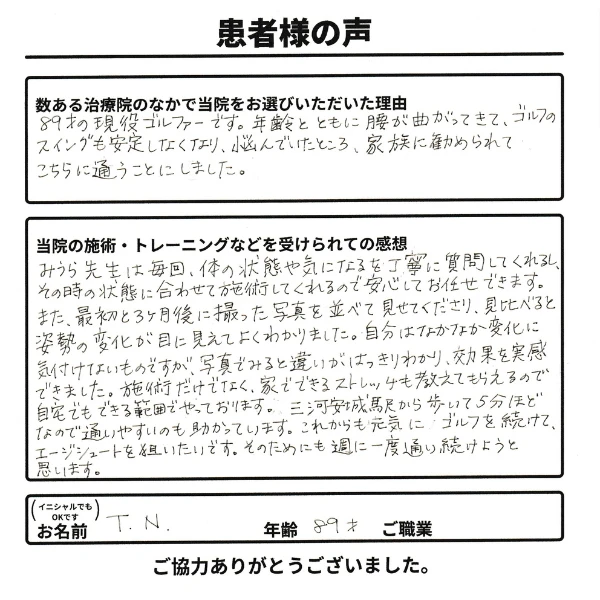 患者様の声
数ある治療院のなかで当院をお選びいただいた理由
89才の現役ゴルファーです。年齢とともに腰が曲がってきて、ゴルフの
スイングも安定しなくなり、悩んでいたところ、家族に勧められて
こちらに通うことにしました。
当院の施術・トレーニングなどを受けられての感想
みうら先生は毎回、体の状態や気になるを丁寧に質問してくれるし、
その時の状態に合わせて施術してくれるので安心してお任せできます。
また、最初と3ヶ月後に撮った写真を並べて見せてくださり、見比べると
姿勢の変化が目に見えてよくわかりました。自分はなかなか変化に
気付けないものですが、写真でみると違いがはっきりわかり、効果を実感
できました。施術だけでなく、家でできるストレッチも教えてもらえるので
自宅でもできる範囲でやっております。三河安城駅から歩いて5分ほど
なので通いやすいのも助かっています。これからも元気にゴルフを続けて、
エージシュートを狙いたいです。そのためにも週に一度通い続けようと
思います。
(イニシャルでも
OKです)
お名前 T.N. 年齢 89才 ご職業
ご協力ありがとうございました。